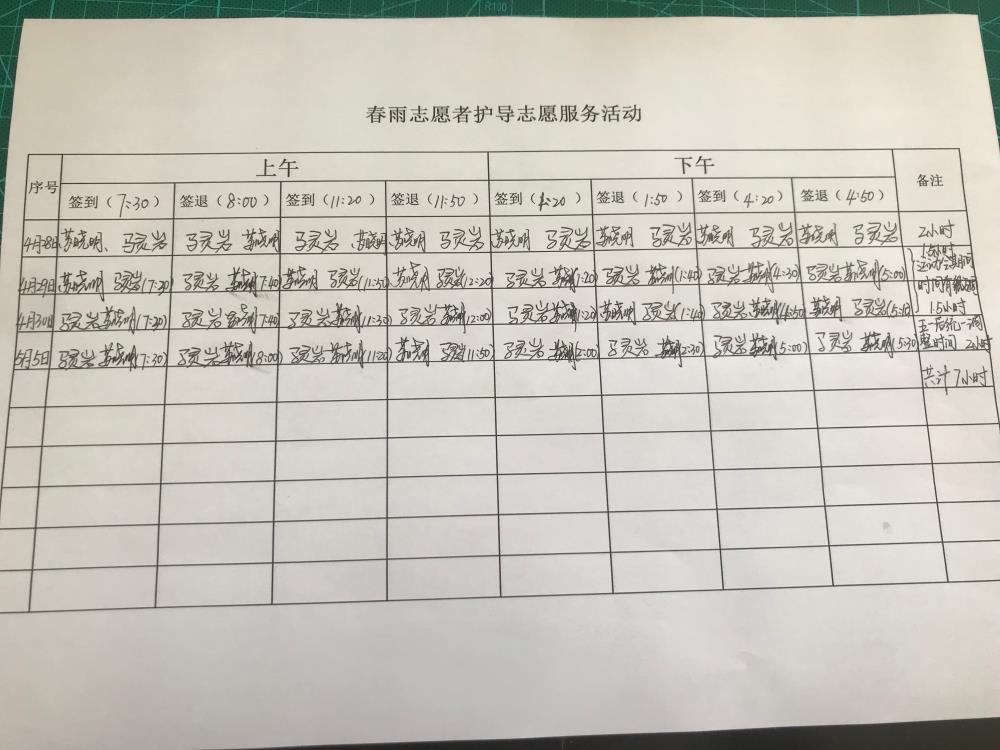 R100
春雨志愿者护导志愿服务活动
序号 上午 下午 备注
签到（7:30） 签退（8:00） 签到（11:20） 签退（11:50） 签到（1:20） 签退（1:50） 签到（4:20） 签退（4:50）
4月28日 苏晓明、马灵岩 马灵岩 苏晓明 马灵岩、苏晓明 苏晓明 马灵岩 苏晓明 马灵岩 苏晓明 马灵岩 苏晓明 马灵岩 苏晓明 马灵岩 2小时
4月29日 苏晓明 马灵岩(7:20) 马灵岩 苏晓明(7:40) 苏晓明 马灵岩(11:50) 苏晓明 马灵岩(12:20) 马灵岩 苏晓明(1:20) 马灵岩 苏晓明(1:40) 马灵岩 苏晓明(4:30) 马灵岩 苏晓明(5:00) 1.5小时
时间有
4月30日 马灵岩 苏晓明(7:20) 马灵岩 苏晓明 7:40) 马灵岩 苏晓明(11:30) 马灵岩 苏晓明(12:00) 马灵岩 苏晓明(1:20 苏晓明 马灵岩(1:40) 马灵岩 苏晓明(4:50) 苏晓明 马灵岩(5:10 1.5小时
5月5日 马灵岩 苏晓明(7:30) 马灵岩 苏晓明(8:00) 马灵岩 苏晓明(11:20) 苏晓明 马灵岩(11:50) 马灵岩 苏晓明(2:00) 马灵岩 苏晓明(2:30) 马灵岩 苏晓明(5:00) 马灵岩 苏晓明(5:30 五一后统一调
整时间 2小时
共计7小时